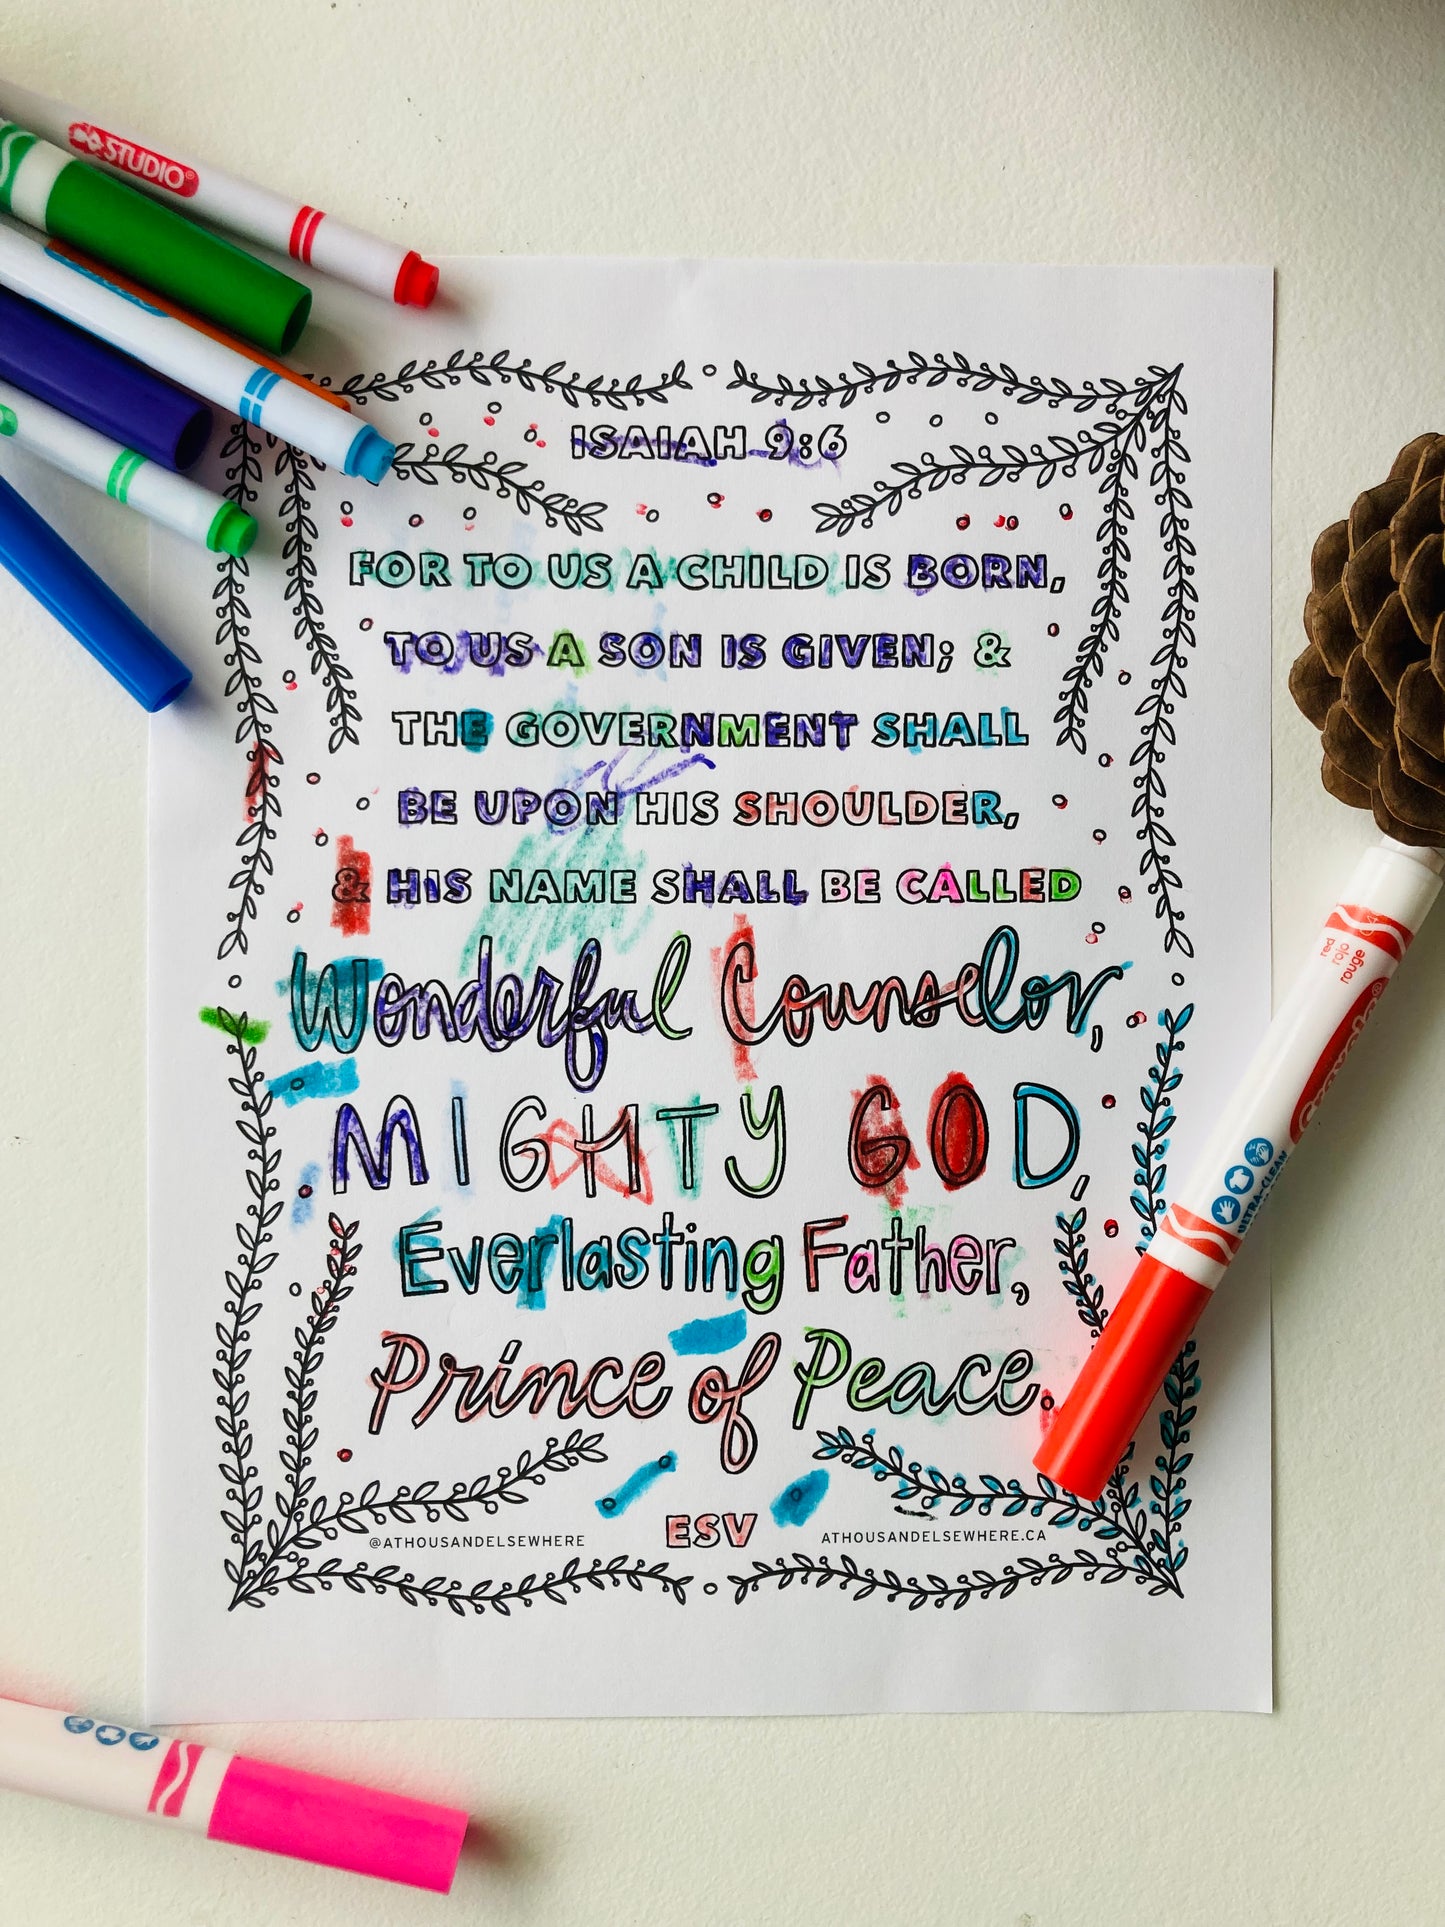 STUDIO®
ISAIAH 9:6
FOR TO US A CHILD IS BORN,
TO US A SON IS GIVEN; &
THE GOVERNMENT SHALL
BE UPON HIS SHOULDER,
& HIS NAME SHALL BE CALLED
Wonderful Counselor,
MIGHTY GOD,
Everlasting Father,
Prince of Peace.
@ATHOUSANDELSEWHERE
ESV
ATHOUSANDELSEWHERE.CA
red
rojo
rouge
Crayola®
ULTRA-CLEAN